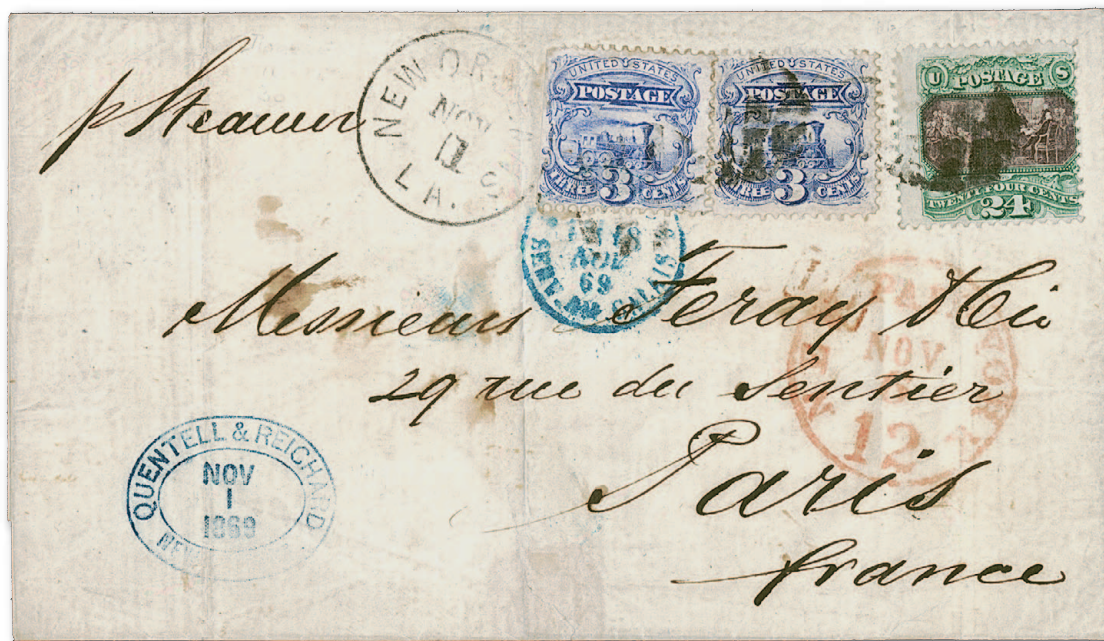 p Steamer
NEW ORLEANS
NOV
LA.
UNITED STATES
POSTAGE
THREE 3 CENTS
UNITED STATES
POSTAGE
THREE 3 CENTS
U POSTAGE S
TWENTY FOUR CENTS
24
18
NOV
69
CALAIS
Messieurs Feray & Cie
29 rue du Sentier
Paris
france
NOV
12
QUENTELL & REICHARD
NOV
1
1869
NEW